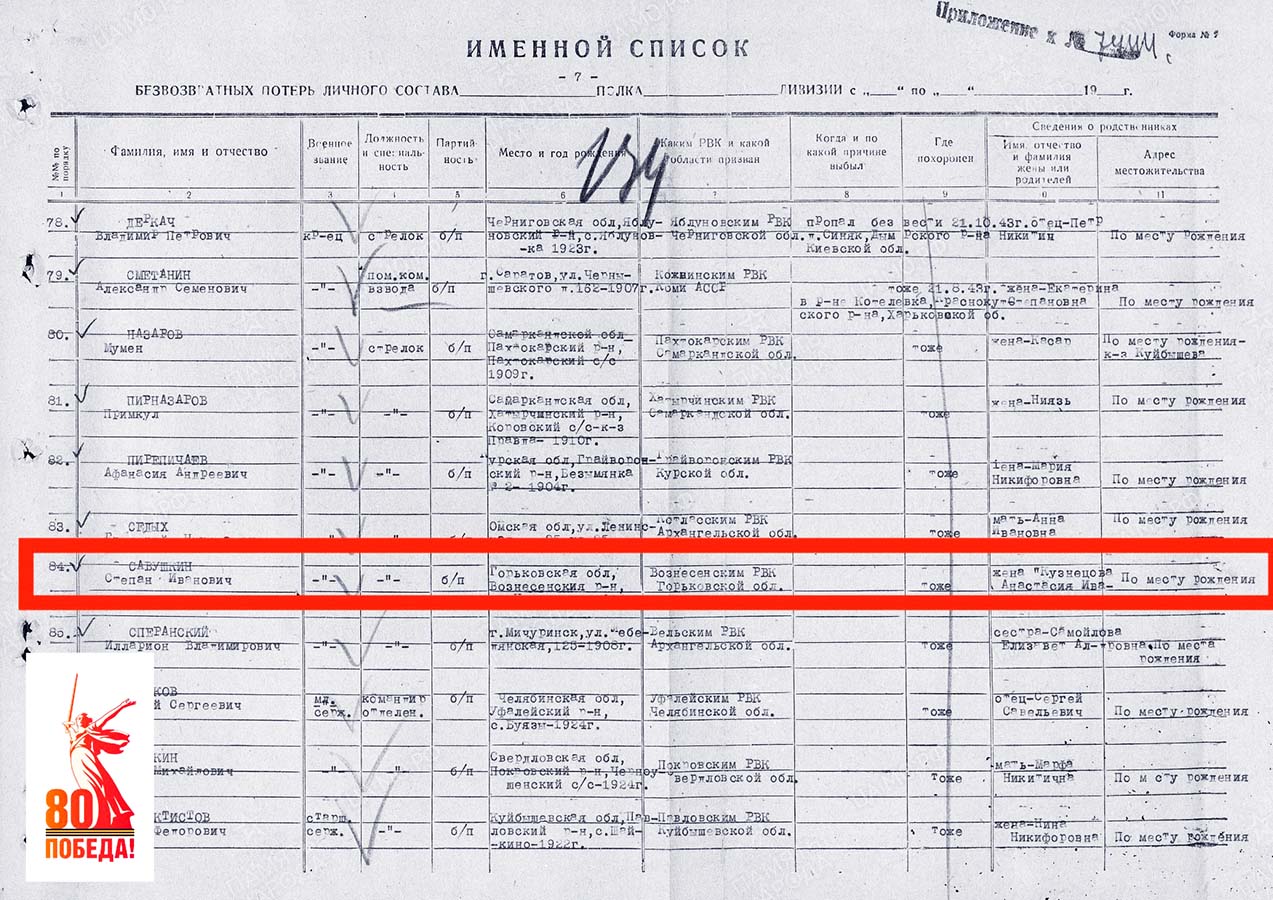 Приложение к № 7944 с
Форма № 2
ИМЕННОЙ СПИСОК
- 7 -
БЕЗВОЗВРАТНЫХ ПОТЕРЬ ЛИЧНОГО СОСТАВА ПОЛКА ДИВИЗИИ с „ “ по „ “ 19 г.
№№ по порядку
Фамилия, имя и отчество
Военное звание
Должность и специальность
Партийность
Место и год рождения
Каким РВК и какой области призван
Когда и по какой причине выбыл
Где похоронен
Сведения о родственниках
Имя, отчество и фамилия жены или родителей
Адрес местожительства
1 2 3 4 5 6 7 8 9 10 11
78. ДЕРКАЧ Черниговская обл,Яблу- Яблуновским РВК пропал без вести 21.10.43г. отец-Петр
Владимир Петрович кр-ец стрелок б/п новский р-н,с.Яблунов- Черниговской обл. т.Синяк,Дымерского р-на Никитич По месту рождения
-ка 1923г. Киевской обл.
79. СМЕТАНИН пом.ком. г.Саратов,ул.Черны- Кожвинским РВК
Александр Семенович -"- взвода б/п шевского д.162-1907г. Коми АССР тоже 21.8.43г. жена-Екатерина
в р-не Котелевка, Степановна По месту рождения
ского р-на,Харьковской об.
80. НАЗАРОВ Самаркантской обл
Мумен -"- стрелок б/п Пахтокарский р-н, Пахтокарским РВК тоже жена-Касар По месту рождения-
Пахтокарский с/с Самаркантской обл. к-з Куйбышева
1909г.
81. ПИРНАЗАРОВ Самаркантская обл, Хатырчинским РВК жена-Ниязь По месту рождения
Примкул -"- -"- б/п Хатырчинский р-н, Самаркандской обл. тоже
Коровский с/с-к-з
Правда- 1910г.
82. ПИРЕПИЧАЕВ Курская обл,Грайворон- Грайворонским РВК
Афанасия Андреевич -"- -"- б/п ский р-н,Безымянка Курской обл. тоже жена-Мария
№ 2- 1904г. Никифоровна По месту рождения
83. СЕДЫХ Омская обл,ул.Ленинс- Котласским РВК мать-Анна По месту рождения
Архангельской обл. тоже Ивановна
84. САВУШКИН Горьковская обл, Вознесенским РВК жена "Кузнецова
Степан Иванович -"- -"- б/п Вознесенския р-н, Горьковской обл. тоже Анастасия Ива- По месту рождения
85. СПЕРАНСКИЙ г.Мичуринск,ул.Лебе- Вельским РВК сестра-Самойлова
Илларион Владимирович -"- -"- б/п дянская,125-1908г. Архангельской обл. тоже Елизавет Ал-тровна,По места
рождения
КОВ мл. командир б/п Челябинская обл, Уфалейским РВК отец-Сергей
й Сергеевич серж. отделен. Уфалейский р-н, Челябинской обл. тоже Савельевич По месту рождения
с.Буязы-1924г.
КИН Свердловская обл, Покровским РВК мать-Марфа
Михайлович -"- -"- б/п Покровский р-н,Черноу- Свердловской обл. тоже Никитична По месту рождения
шенский с/с-1924г.
КТИСТОВ старш. Куйбышевская обл,Пав- Павловским РВК жена-Нина
Федорович серж. -"- б/п ловский р-н,с.Шай- Куйбышевской обл. тоже Никифоровна По месту рождения
-кино-1922г.
80
ПОБЕДА!